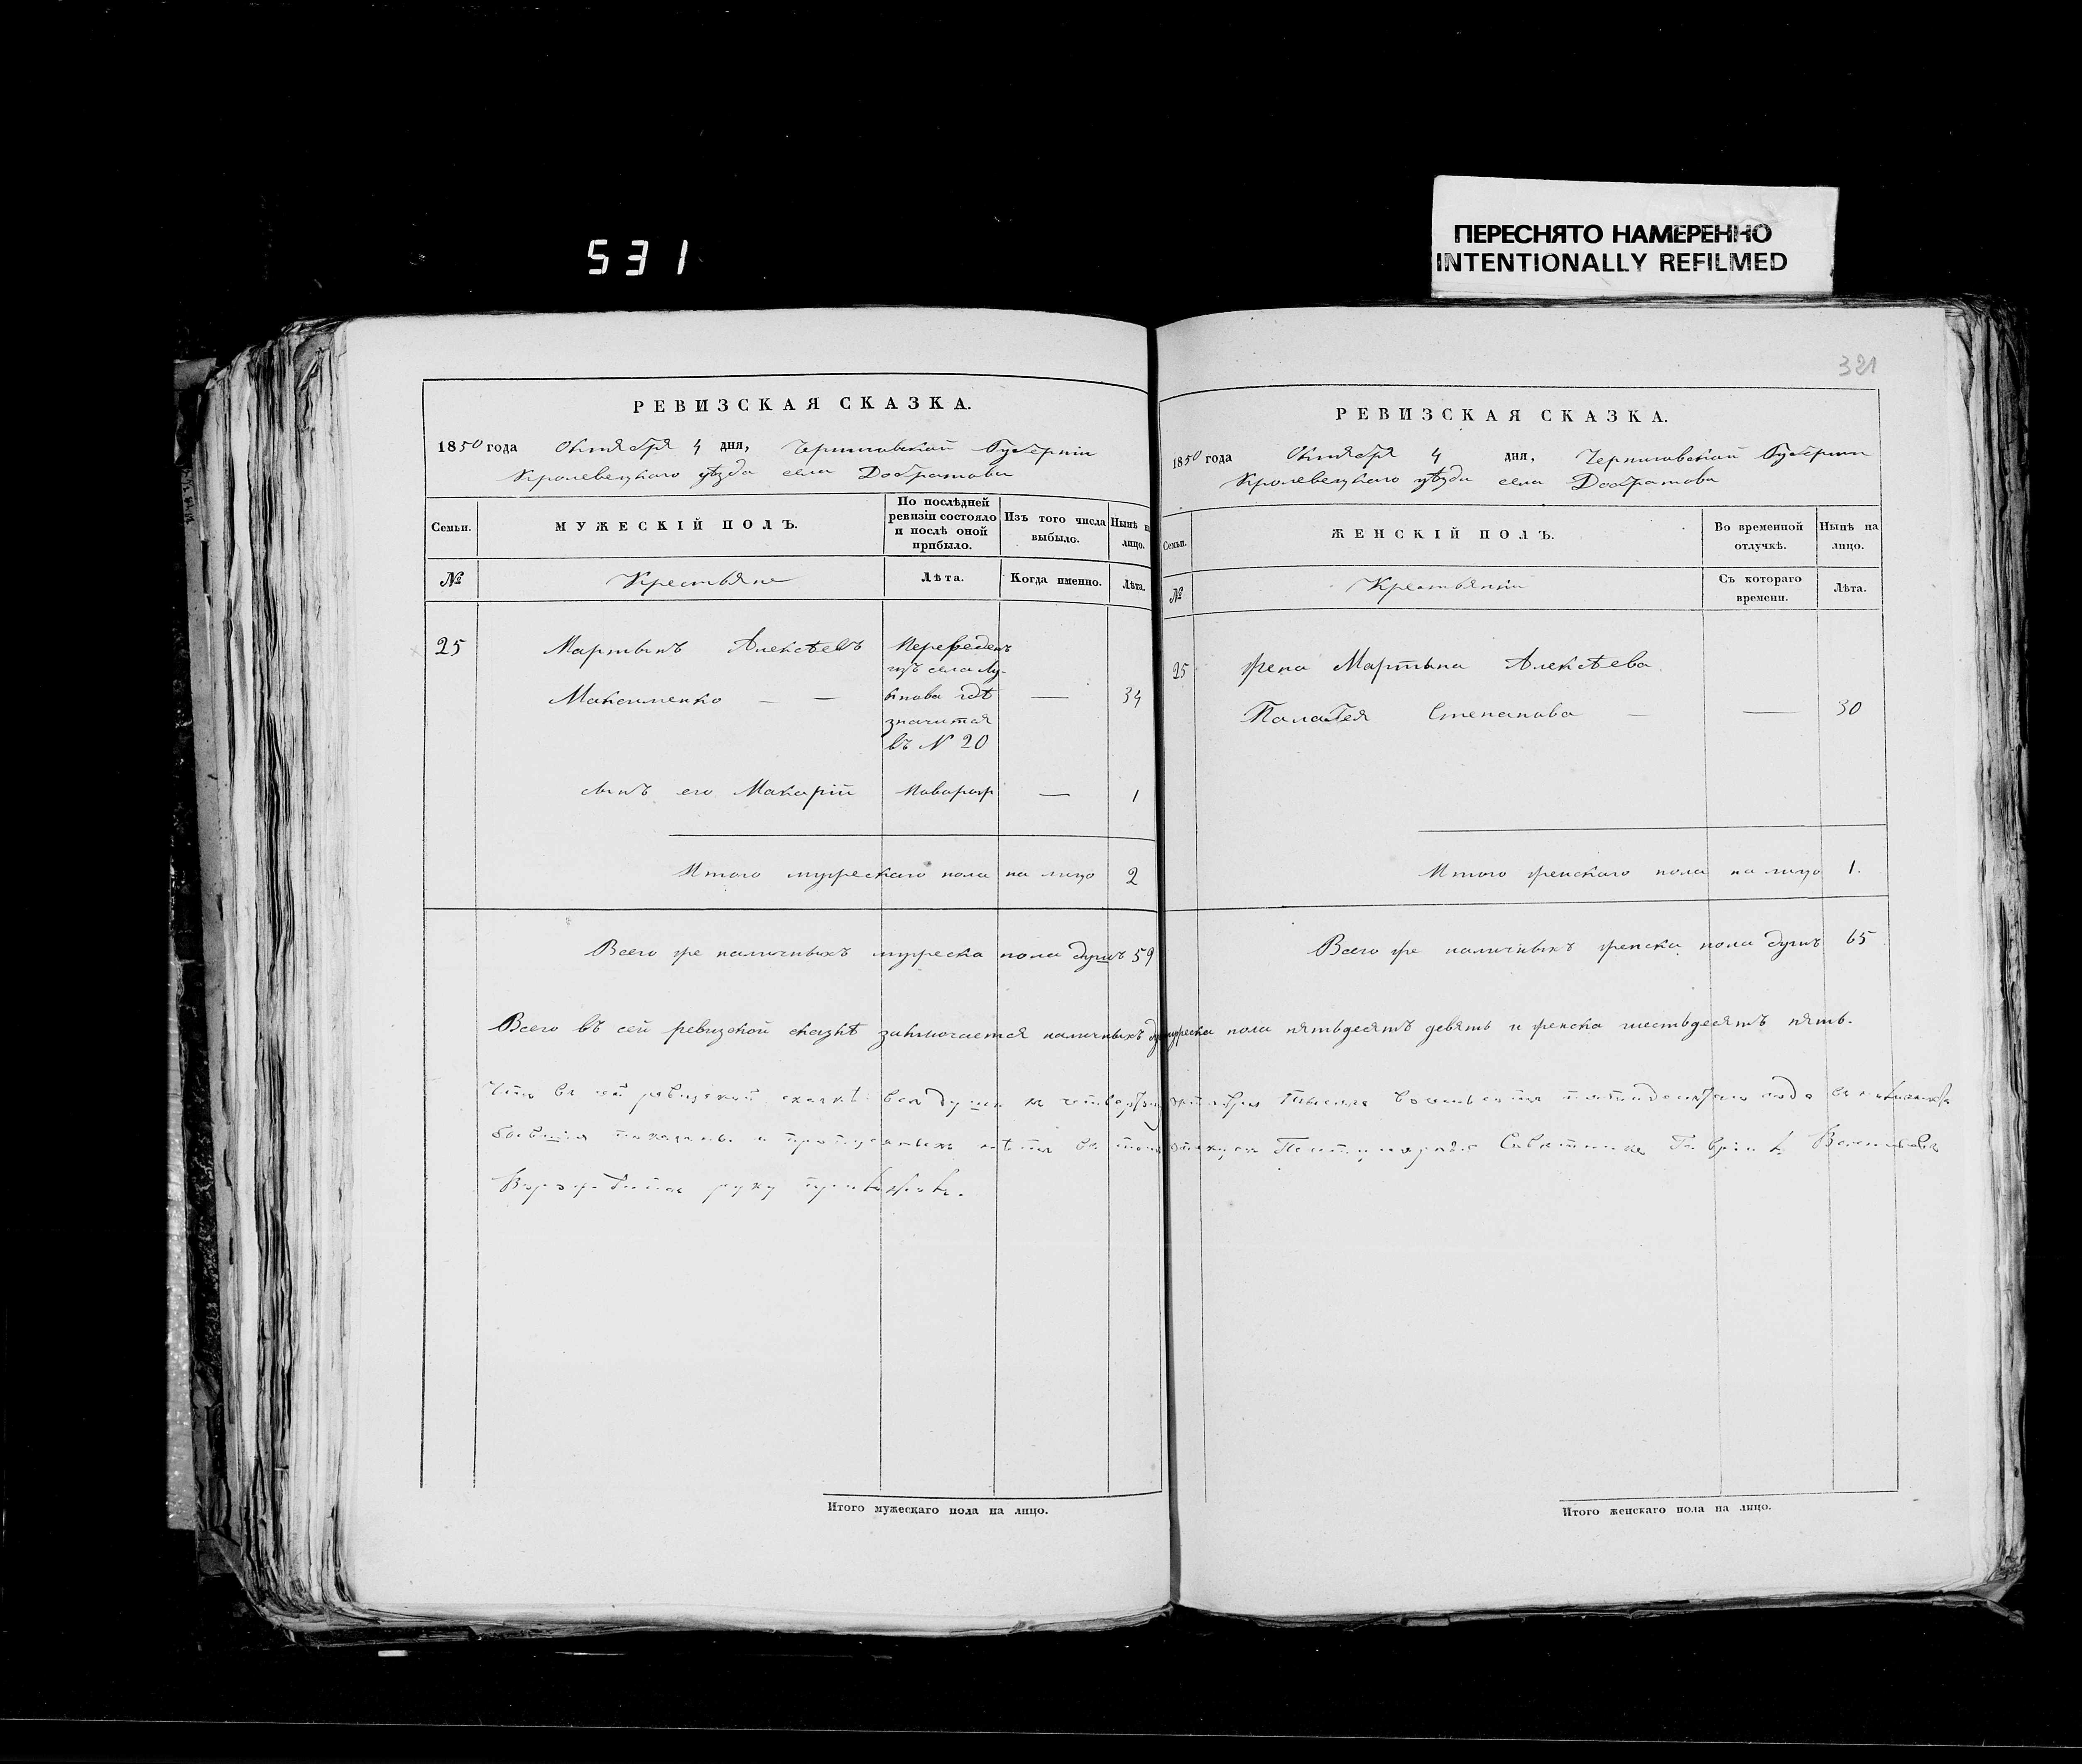 531
ПЕРЕСНЯТО НАМЕРЕННО
INTENTIONALLY REFILMED
РЕВИЗСКАЯ СКАЗКА.
1850 года Октября 4 дня, Черниговской Губернии
Кролевецкаго уѣзда села Добратова
Семьи.
МУЖЕСКІЙ ПОЛЪ.
По послѣдней ревизіи состояло и послѣ оной прибыло.
Изъ того числа выбыло.
Нынѣ на лицо.
№
Крестьяне
Лѣта.
Когда именно.
Лѣта.
25 Мартынъ Алексѣевъ Переведенъ
изъ села
Максименко — — гдѣ — 34
значится
въ N 20
сынъ его Макарій Новорож — 1
Итого мужескаго пола на лицо 2
Всего же наличныхъ мужеска пола душъ 59
321
РЕВИЗСКАЯ СКАЗКА.
1850 года Октября 4 дня, Черниговской Губернии
Кролевецкаго уѣзда села Добратова
Семьи.
ЖЕНСКІЙ ПОЛЪ.
Во временной отлучкѣ.
Нынѣ на лицо.
№
Крестьянки
Съ котораго времени.
Лѣта.
25 жена Мартына Алексѣева
Палагея Степанова — — 30
Итого женскаго пола на лицо 1.
Всего же наличныхъ женска пола душъ 65
Всего въ сей ревизской сказкѣ заключается наличныхъ мужеска пола пятьдесятъ девять и женска шестьдесятъ пять.
Что въ сей ревизской сказкѣ все души къ октября
показаны и нѣтъ въ томъ
руку приложилъ.
Итого мужескаго пола на лицо.
Итого женскаго пола на лицо.